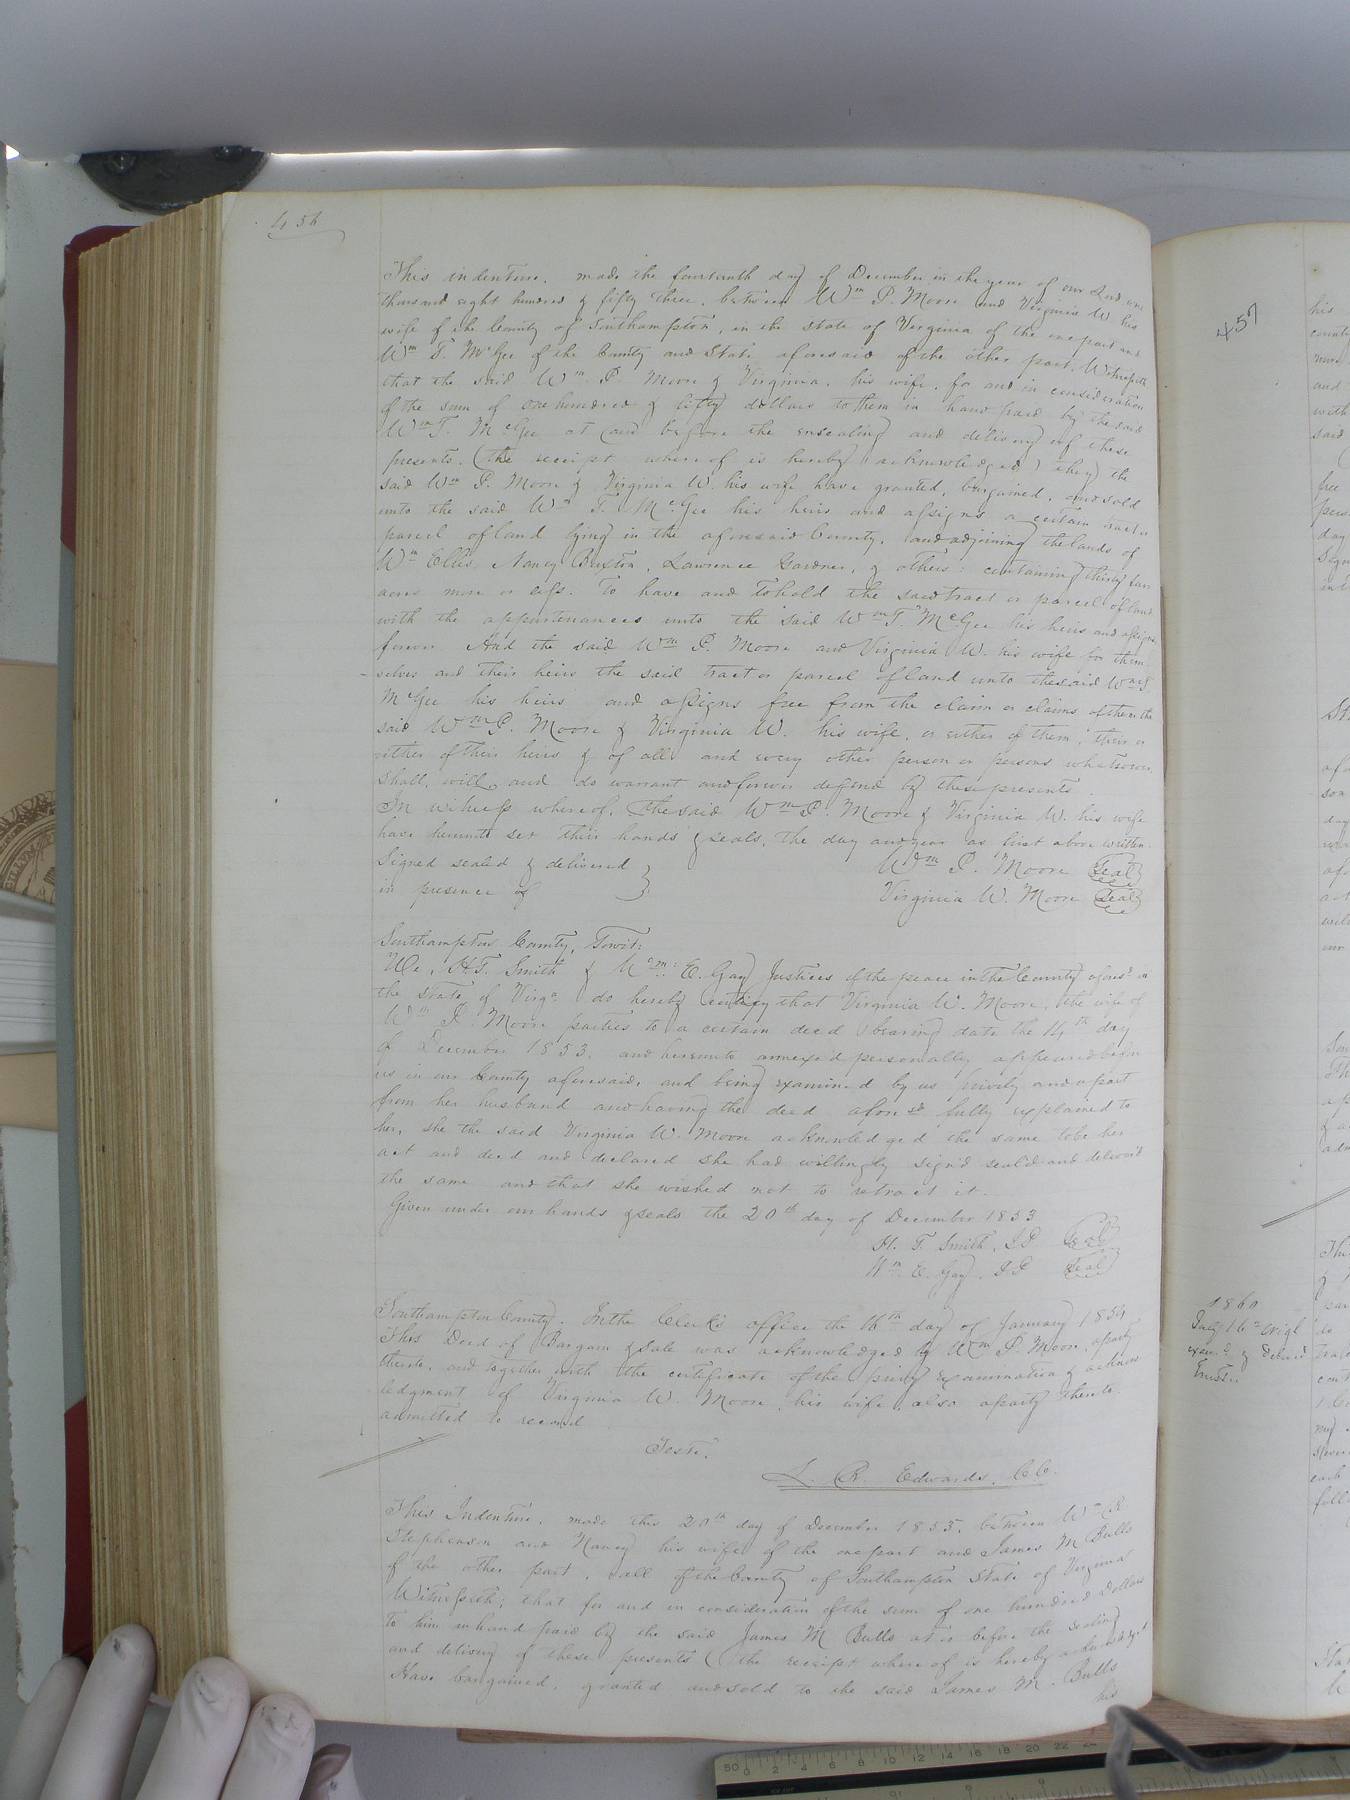 456
This indenture, made the fourteenth day of December in the year of our Lord one
thousand eight hundred & fifty three, between Wm P. Moore and Virginia W his
wife of the County of Southampton, in the State of Virginia of the one part and
Wm T. McGee of the County and State aforesaid of the other part, Witnesseth
that the said Wm P. Moore & Virginia, his wife, for and in consideration
of the sum of one hundred & fifty dollars to them in hand paid by the said
Wm T. McGee at and before the ensealing and delivery of these
presents. (the receipt whereof is hereby acknowledged) they the
said Wm P. Moore & Virginia W. his wife have granted, bargained, and sold
unto the said Wm T. McGee his heirs and assigns a certain tract or
parcel of land lying in the aforesaid County, and adjoining the lands of
Wm Ellis, Nancy Buxton, Lawrence Gardner, & others: containing thirty four
acres more or less. To have and to hold the said tract or parcel of land
with the appurtenances unto the said Wm T. McGee his heirs and assigns
forever And the said Wm P. Moore and Virginia W. his wife for them-
selves and their heirs the said tract or parcel of land unto the said Wm T.
McGee his heirs and assigns free from the claim or claims of them the
said Wm P. Moore & Virginia W. his wife, or either of them, their or
either of their heirs & of all and every other person or persons whatsoever
shall, will, and do warrant and forever defend by these presents.
In witness whereof, the said Wm P. Moore & Virginia W. his wife
have hereunto set their hands & seals, the day and year as first above written.
Signed sealed & delivered } Wm P. Moore Seal
in presence of Virginia W. Moore Seal
Southampton County, Towit:
We, H. T. Smith & Wm: E. Gay Justices of the peace in the County afores'd in
the State of Virga do hereby certify that Virginia W. Moore, the wife of
Wm P. Moore parties to a certain deed bearing date the 14th day
of December 1853, and hereunto annexed personally appeared before
us in our County aforesaid, and being examined by us privily and apart
from her husband and having the deed afores'd fully explained to
her, she the said Virginia W. Moore acknowledged the same to be her
act and deed and declared she had willingly sign'd seal'd and deliver'd
the same and that she wished not to retract it.
Given under our hands & seals the 20th day of December 1853
H. T. Smith, J P Seal
Wm E. Gay, J P Seal
Southampton County. In the Clerk's office the 16th day of January 1854
This Deed of Bargain & sale was acknowledged by Wm P. Moore, a party
thereto, and together with the certificate of the privy examination & acknow
ledgment of Virginia W. Moore, his wife, also a party thereto
admitted to record
Teste.
L. R. Edwards. C C.
This Indenture, made this 20th day of December 1853, between Wm R
Stephenson and Nancy his wife of the one part and James M Butts
of the other part, all of the County of Southampton State of Virginia
Witnesseth; that for and in consideration of the sum of one hundred dollars
to him in hand paid by the said James M Butts at or before the sealing
and delivery of these presents (the receipt whereof is hereby acknowledged
Have bargained, granted and sold to the said James M. Butts
his
457
1860
July 16th Origl
exam'd & deliv'd
Trustee